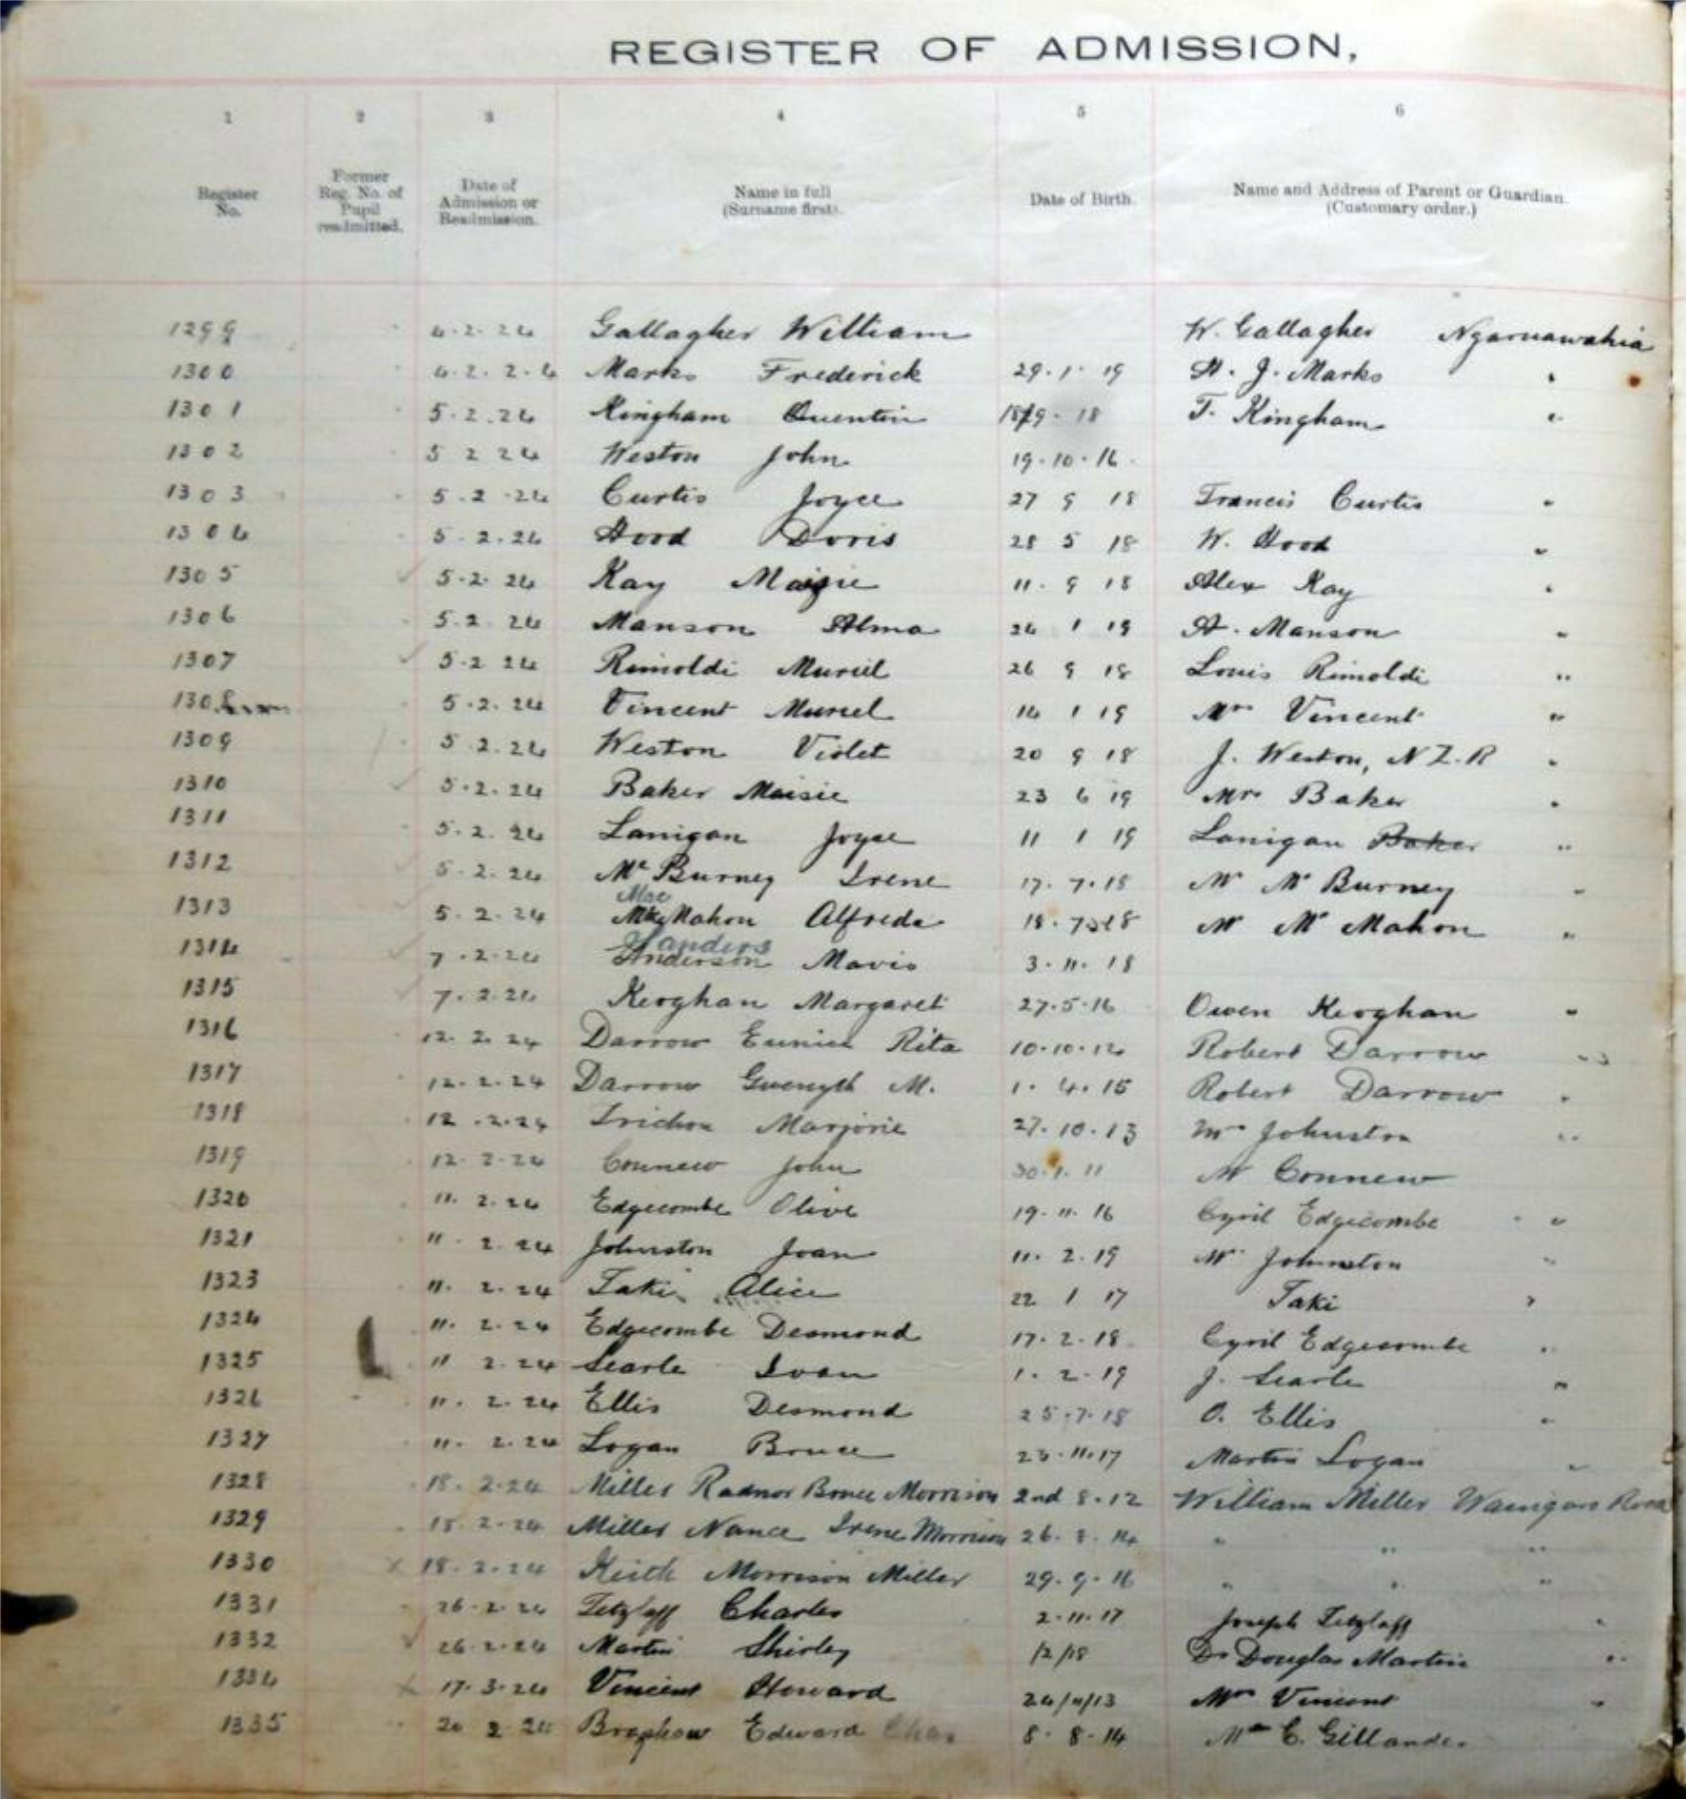 REGISTER OF ADMISSION,
1 2 3 4 5 6
Register No. Former Reg. No. of Pupil readmitted. Date of Admission or Readmission. Name in full (Surname first). Date of Birth. Name and Address of Parent or Guardian. (Customary order.)
1299 4.2.24 Gallagher William W. Gallagher Ngaruawahia
1300 4.2.24 Marks Frederick 29.1.19 H. J. Marks "
1301 5.2.24 Kingham Quentin 18/9.18 T. Kingham "
1302 5 2 24 Weston John 19.10.16
1303 5.2.24 Curtis Joyce 27 9 18 Francis Curtis "
1304 5.2.24 Hood Doris 28 5 18 W. Hood "
1305 5.2.24 Kay Maisie 11.9 18 Alex Kay "
1306 5.2.24 Manson Alma 24 1 19 A. Manson "
1307 5.2 24 Rimoldi Muriel 26 9 18 Louis Rimoldi "
1308 5.2.24 Vincent Muriel 14 1 19 Mrs Vincent "
1309 5.2.24 Weston Violet 20 9 18 J. Weston, N Z.R "
1310 5.2.24 Baker Maisie 23 6 19 Mrs Baker "
1311 5.2.24 Lanigan Joyce 11 1 19 Lanigan Baker "
1312 5.2.24 Mc Burney Irene 17.7.18 Mr Mc Burney "
1313 5.2.24 Mac Mahon Alfreda 18.7.18 Mr Mc Mahon "
1314 7.2.24 Anderson Mavis 3.11.18
1315 7.2.24 Keoghan Margaret 27.5.16 Owen Keoghan "
1316 12.2.24 Darrow Eunice Rita 10.10.12 Robert Darrow "
1317 12.2.24 Darrow Gwenyth M. 1.4.15 Robert Darrow "
1318 12.2.24 Marjorie 27.10.13 Mr Johnston "
1319 12.2.24 Connew John 30.1.11 Mr Connew
1320 11.2.24 Edgecombe Olive 19.11.16 Cyril Edgecombe "
1321 11.2.24 Johnston Joan 11.2.19 Mr Johnston "
1323 11.2.24 Taki Alice 22 1 17 Taki "
1324 11.2.24 Edgecombe Desmond 17.2.18 Cyril Edgecombe "
1325 11 2.24 Searle Ivan 1.2.19 J. Searle "
1326 11.2.24 Ellis Desmond 25.7.18 O. Ellis "
1327 11.2.24 Logan Bruce 23.11.17 Martin Logan "
1328 18.2.24 Miller Radnor Bruce Morrison 2nd 8.12 William Miller Waingaro Road
1329 18.2.24 Miller Nance Irene Morrison 26.8.14 " " "
1330 x 18.2.24 Keith Morrison Miller 29.9.16 " " "
1331 26.2.24 Tetzlaff Charles 2.11.17 Joseph Tetzlaff "
1332 26.2.24 Martin Shirley /2/18 Dr Douglas Martin "
1334 x 17.3.24 Vincent Howard 24/11/13 Mrs Vincent "
1335 20 2 24 Edward Chas 8.8.14 Mrs C. Gillander